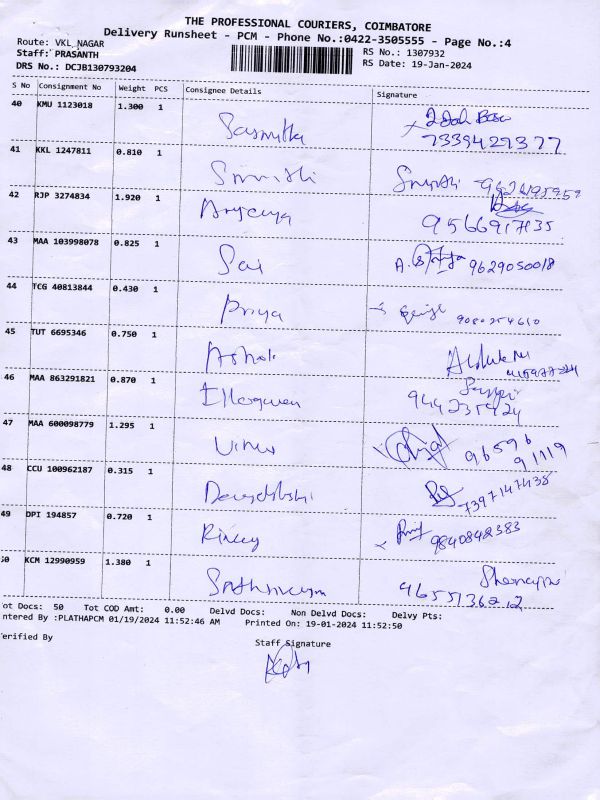 THE PROFESSIONAL COURIERS, COIMBATORE
Delivery Runsheet - PCM - Phone No.:0422-3505555 - Page No.:4
Route: VKL_NAGAR
Staff: PRASANTH
DRS No.: DCJB130793204
RS No.: 1307932
RS Date: 19-Jan-2024
S No Consignment No Weight PCS Consignee Details Signature
40 KMU 1123018 1.300 1 Sasmitha
7339427377
41 KKL 1247811 0.810 1
42 RJP 3274834 1.920 1
9566917135
43 MAA 103998078 0.825 1 Sai 9629050018
44 TCG 40813844 0.430 1 Priya 9080254610
45 TUT 6695346 0.750 1 Ashok
46 MAA 863291821 0.870 1
944235424
47 MAA 600098779 1.295 1 96596
91119
48 CCU 100962187 0.315 1
7397147438
49 DPI 194857 0.720 1 9840842383
50 KCM 12990959 1.380 1
9655136212
ot Docs: 50 Tot COD Amt: 0.00 Delvd Docs: Non Delvd Docs: Delvy Pts:
ntered By :PLATHAPCM 01/19/2024 11:52:46 AM Printed On: 19-01-2024 11:52:50
erified By Staff Signature